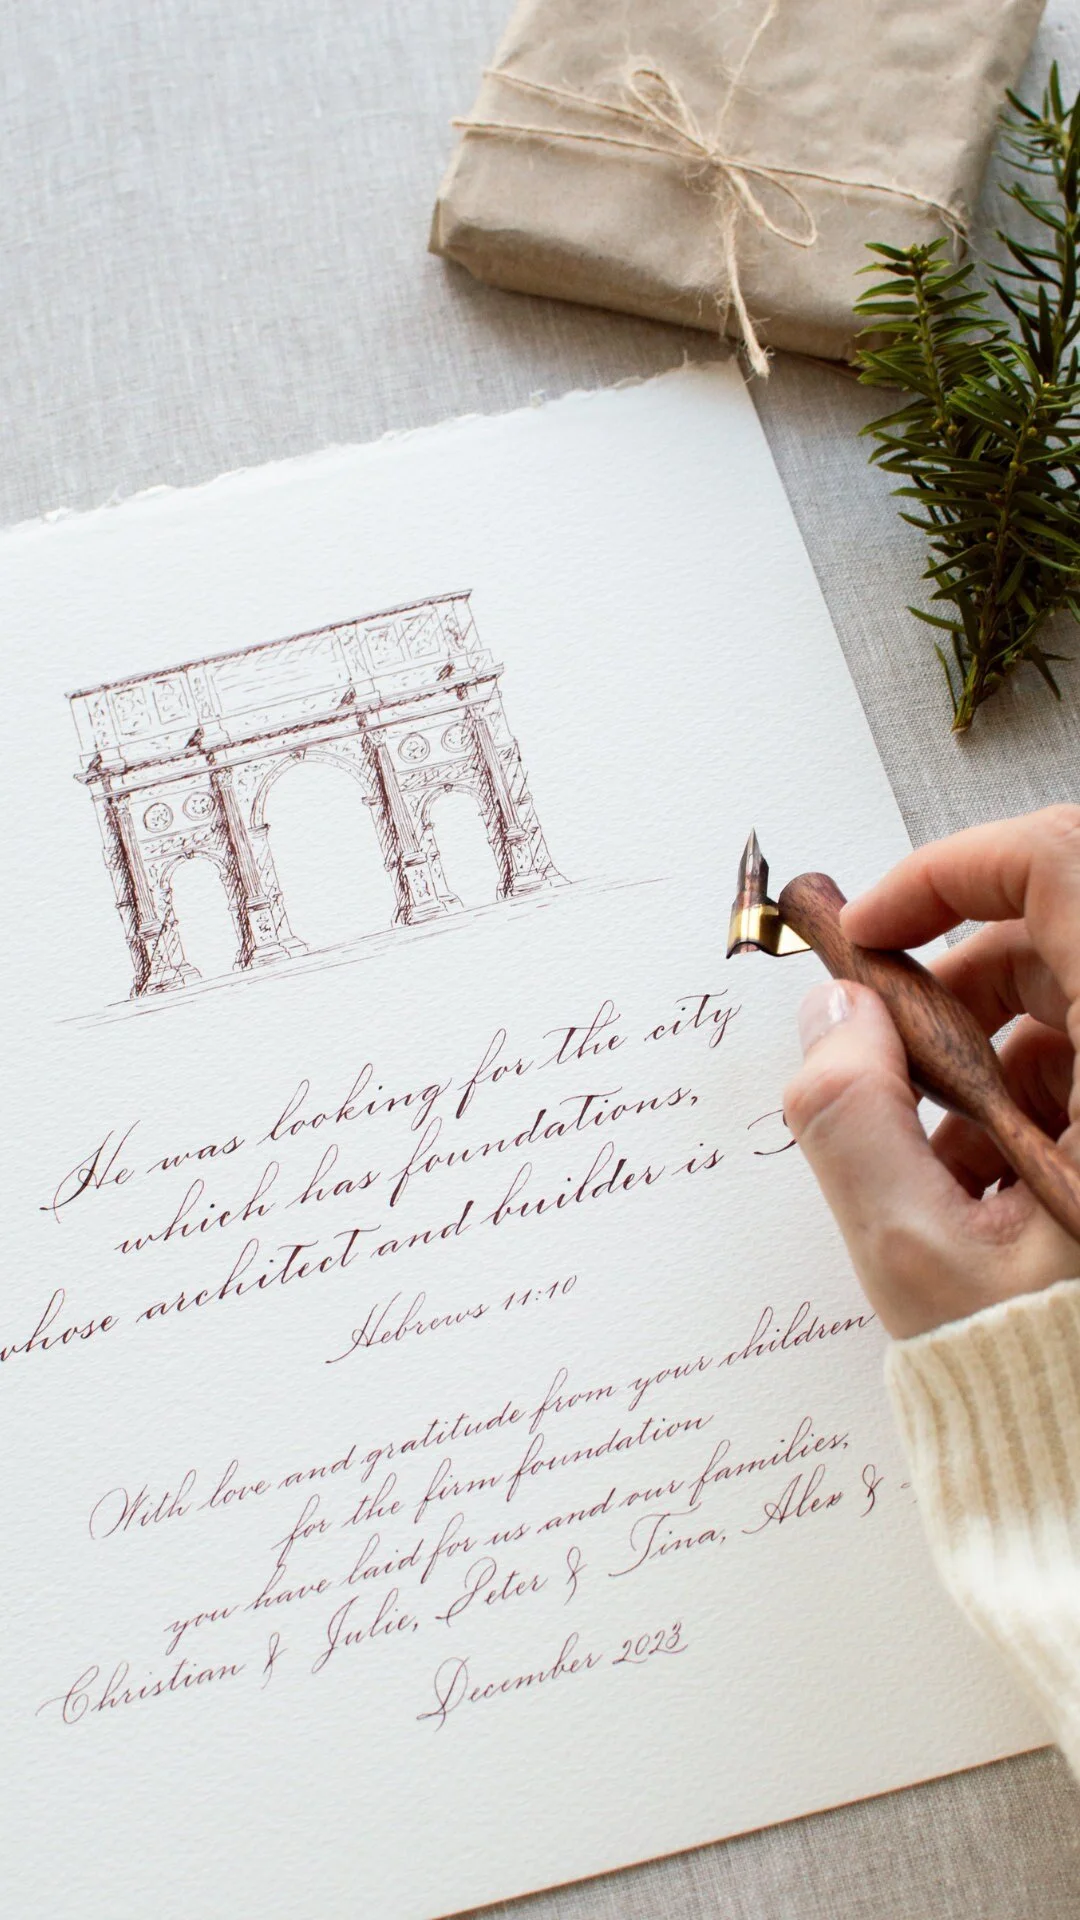 He was looking for the city
which has foundations,
whose architect and builder is
Hebrews 11:10
With love and gratitude from your children
for the firm foundation
you have laid for us and our families,
Christian & Julie, Peter & Tina, Alex &
December 2023